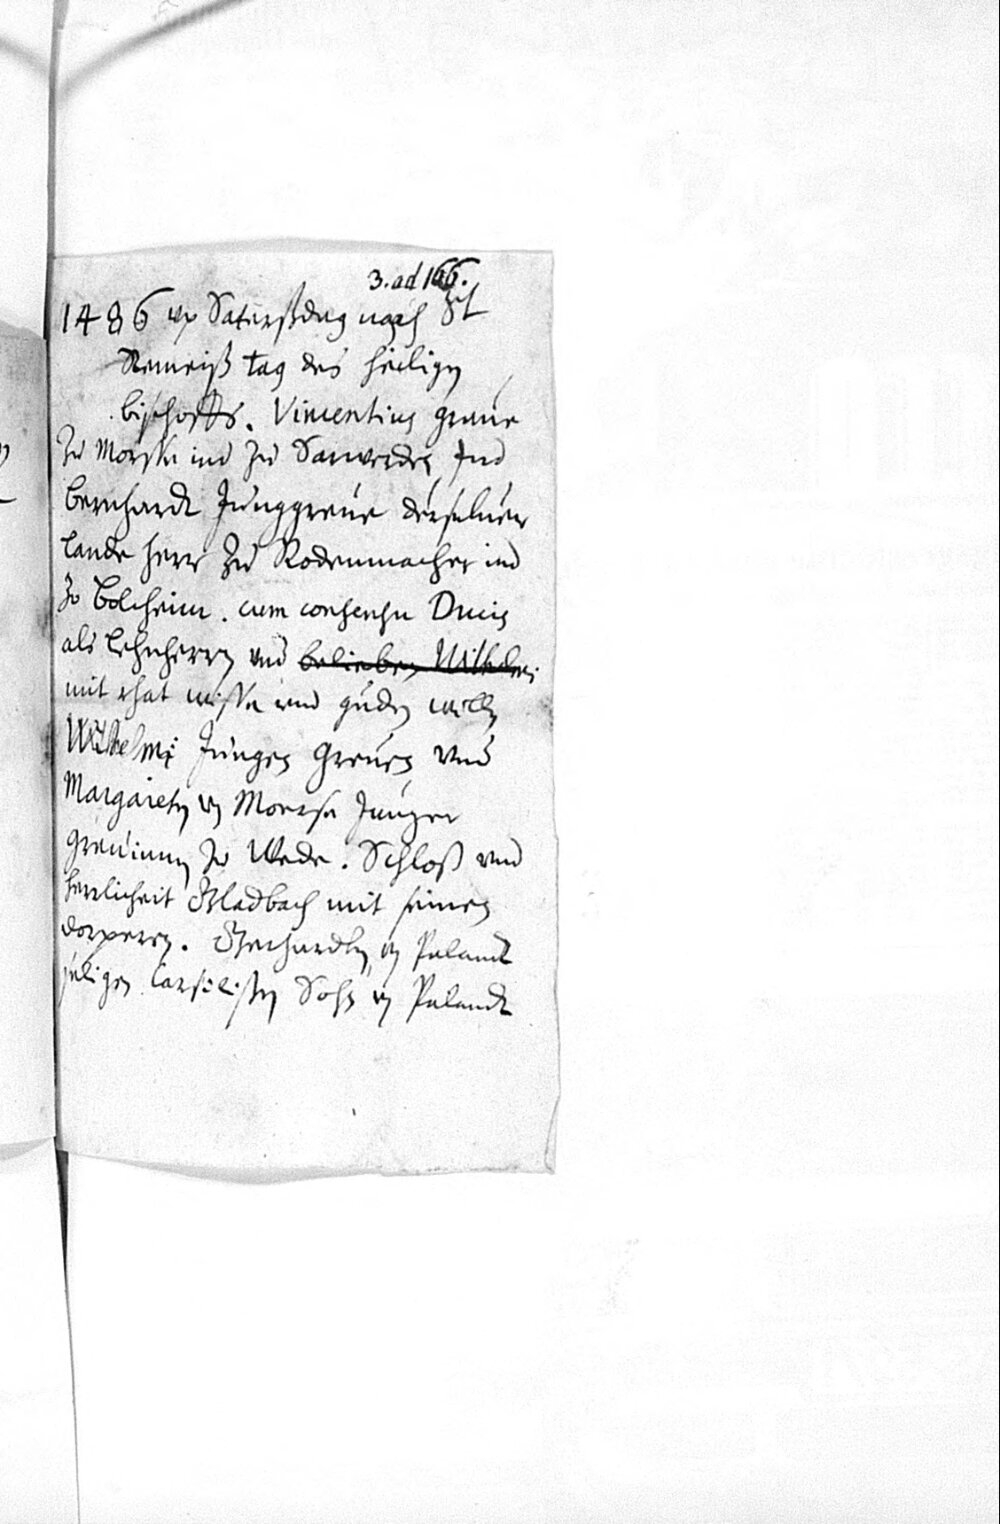 3. ad 166.
1486 up Satersdag nach St
Remeiß tag des heiligen
bischoffs. Vincentius graue
zu Morse ind zu Sarwerden Ind
Bernhardt Junggreue derseluer
Lande herr zu Rodenmacher ind
zo Bolcheim. cum consensu Ducis
als Lehnherrn vnd belieben Wilhelmi
mit rhat wisse ind guden willen
Wilhelmi Jungen Greuen vnd
Margareten v Moerse Junger
greuinnen zo Wede. Schloß vnd
herrlicheit Gladbach mit seinen
dorperen. Gerhardten v Palandt
seligen Carsilißen Sohn v Palandt